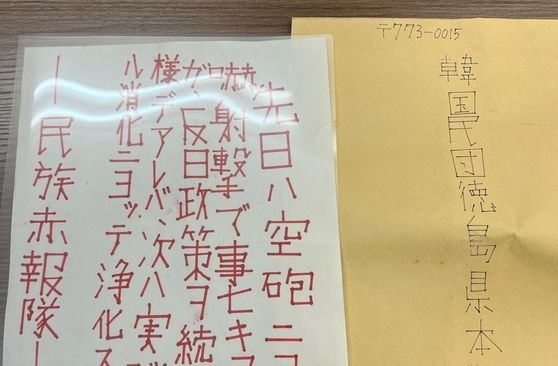 〒773-0015
韓国民団徳島県本
先日ハ空砲ニ
嚇射撃デ事ナキ
ガ、反日政策ヲ続
様デアレバ、次ハ実
ル消化ニヨッテ浄化ス
ー民族赤報隊ー